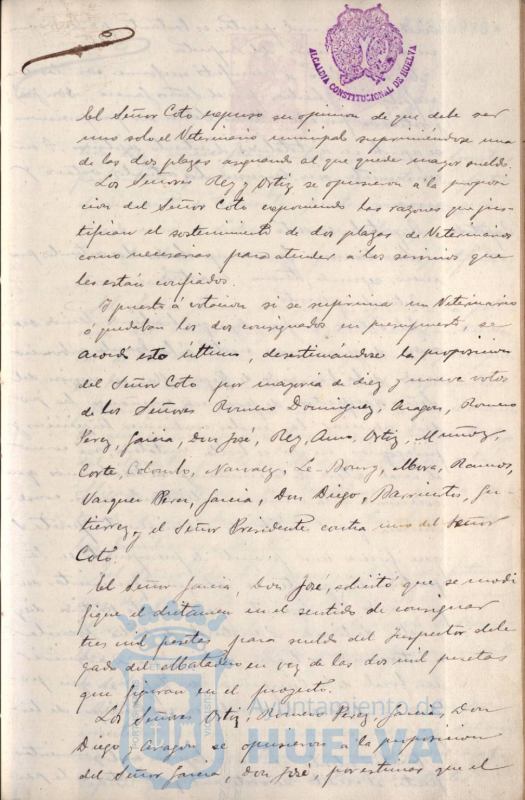 ALCALDIA CONSTITUCIONAL DE HUELVA
El Señor Coto expuso su opinion de que debe ser
uno solo el Veterinario municipal suprimiendose una
de las dos plazas asignando al que quede mayor sueldo.
Los Señores Rey y Ortiz se opusieron á la proposi
cion del Señor Coto exponiendo las razones que jus-
tifican el sostenimiento de dos plazas de Veterinarios
como necesarias para atender á los servicios que
les están confiados.
Y puesto á votacion si se suprimia un Veterinario
ó quedaban los dos consignados en presupuesto, se
acordó esto último, desestimándose la proposicion
del Señor Coto por mayoria de diez y nueve votos
de los Señores Romero Dominguez, Aragon, Romero
Perez, Garcia, Don José, Rey, Amo, Ortiz, Muñoz,
Corte, Colombo, Narvaez, Le-Bourg, Mora, Ramos,
Vazquez Perez, Garcia, Don Diego, Barrientos, Gu-
tierrez, y el Señor Presidente contra uno del Señor
Coto.
El Señor Garcia, Don José, solicitó que se modi
fique el dictamen en el sentido de consignar
tres mil pesetas para sueldo del Inspector dele
gado del Matadero en vez de las dos mil pesetas
que figuran en el proyecto.
Los Señores Ortiz, Romero Perez, Garcia, Don
Diego, Aragon se opusieron á la proposicion
del Señor Garcia, Don José, por estimar que el
Ayuntamiento de
HUELVA